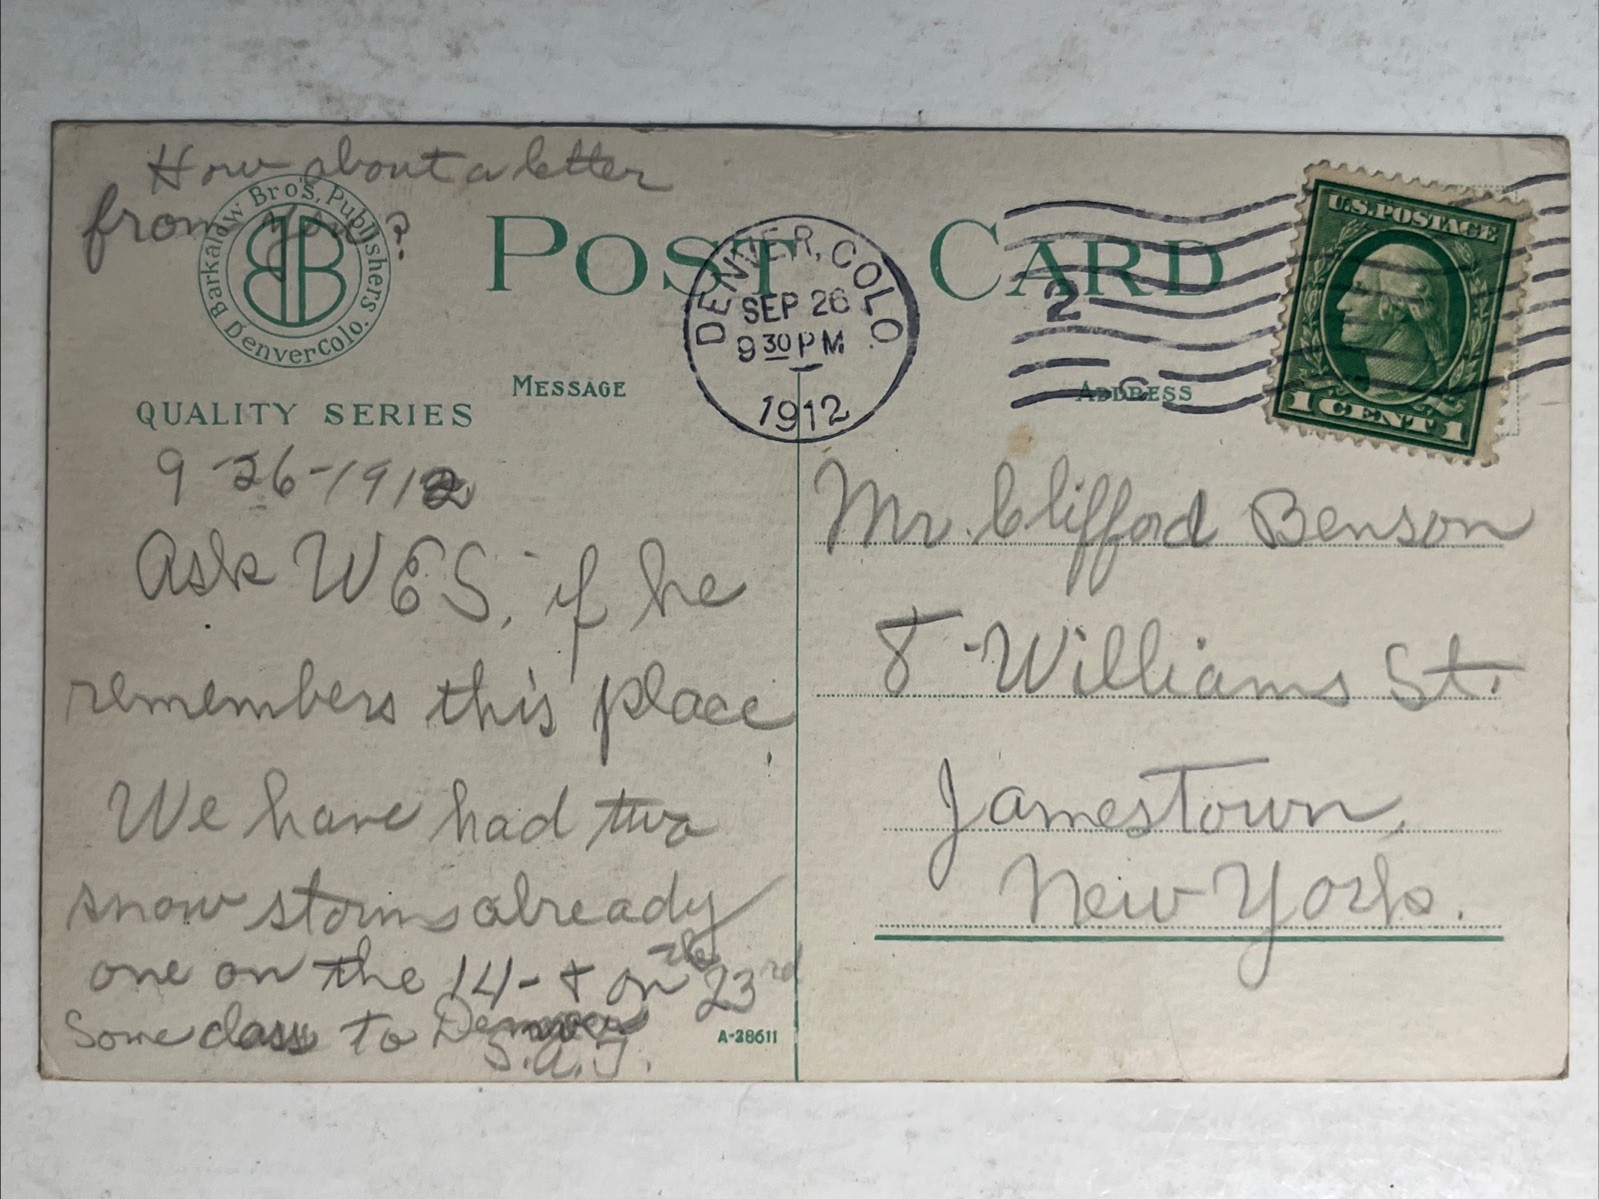 How about a letter
from you?
Barkalow Bro's, Publishers.
Denver Colo.
BB
POST CARD
DENVER, COLO.
SEP 26
9 30 PM
1912
2
U.S. POSTAGE
1 CENT 1
MESSAGE
ADDRESS
QUALITY SERIES
9-26-1912
Ask W E S, if he
remembers this place
We have had two
snow storms already
one on the 14- & on the 23rd
Some class to Denver
S.A.J.
A-28611
Mr. Clifford Benson
8 Williams St.
Jamestown,
New York.